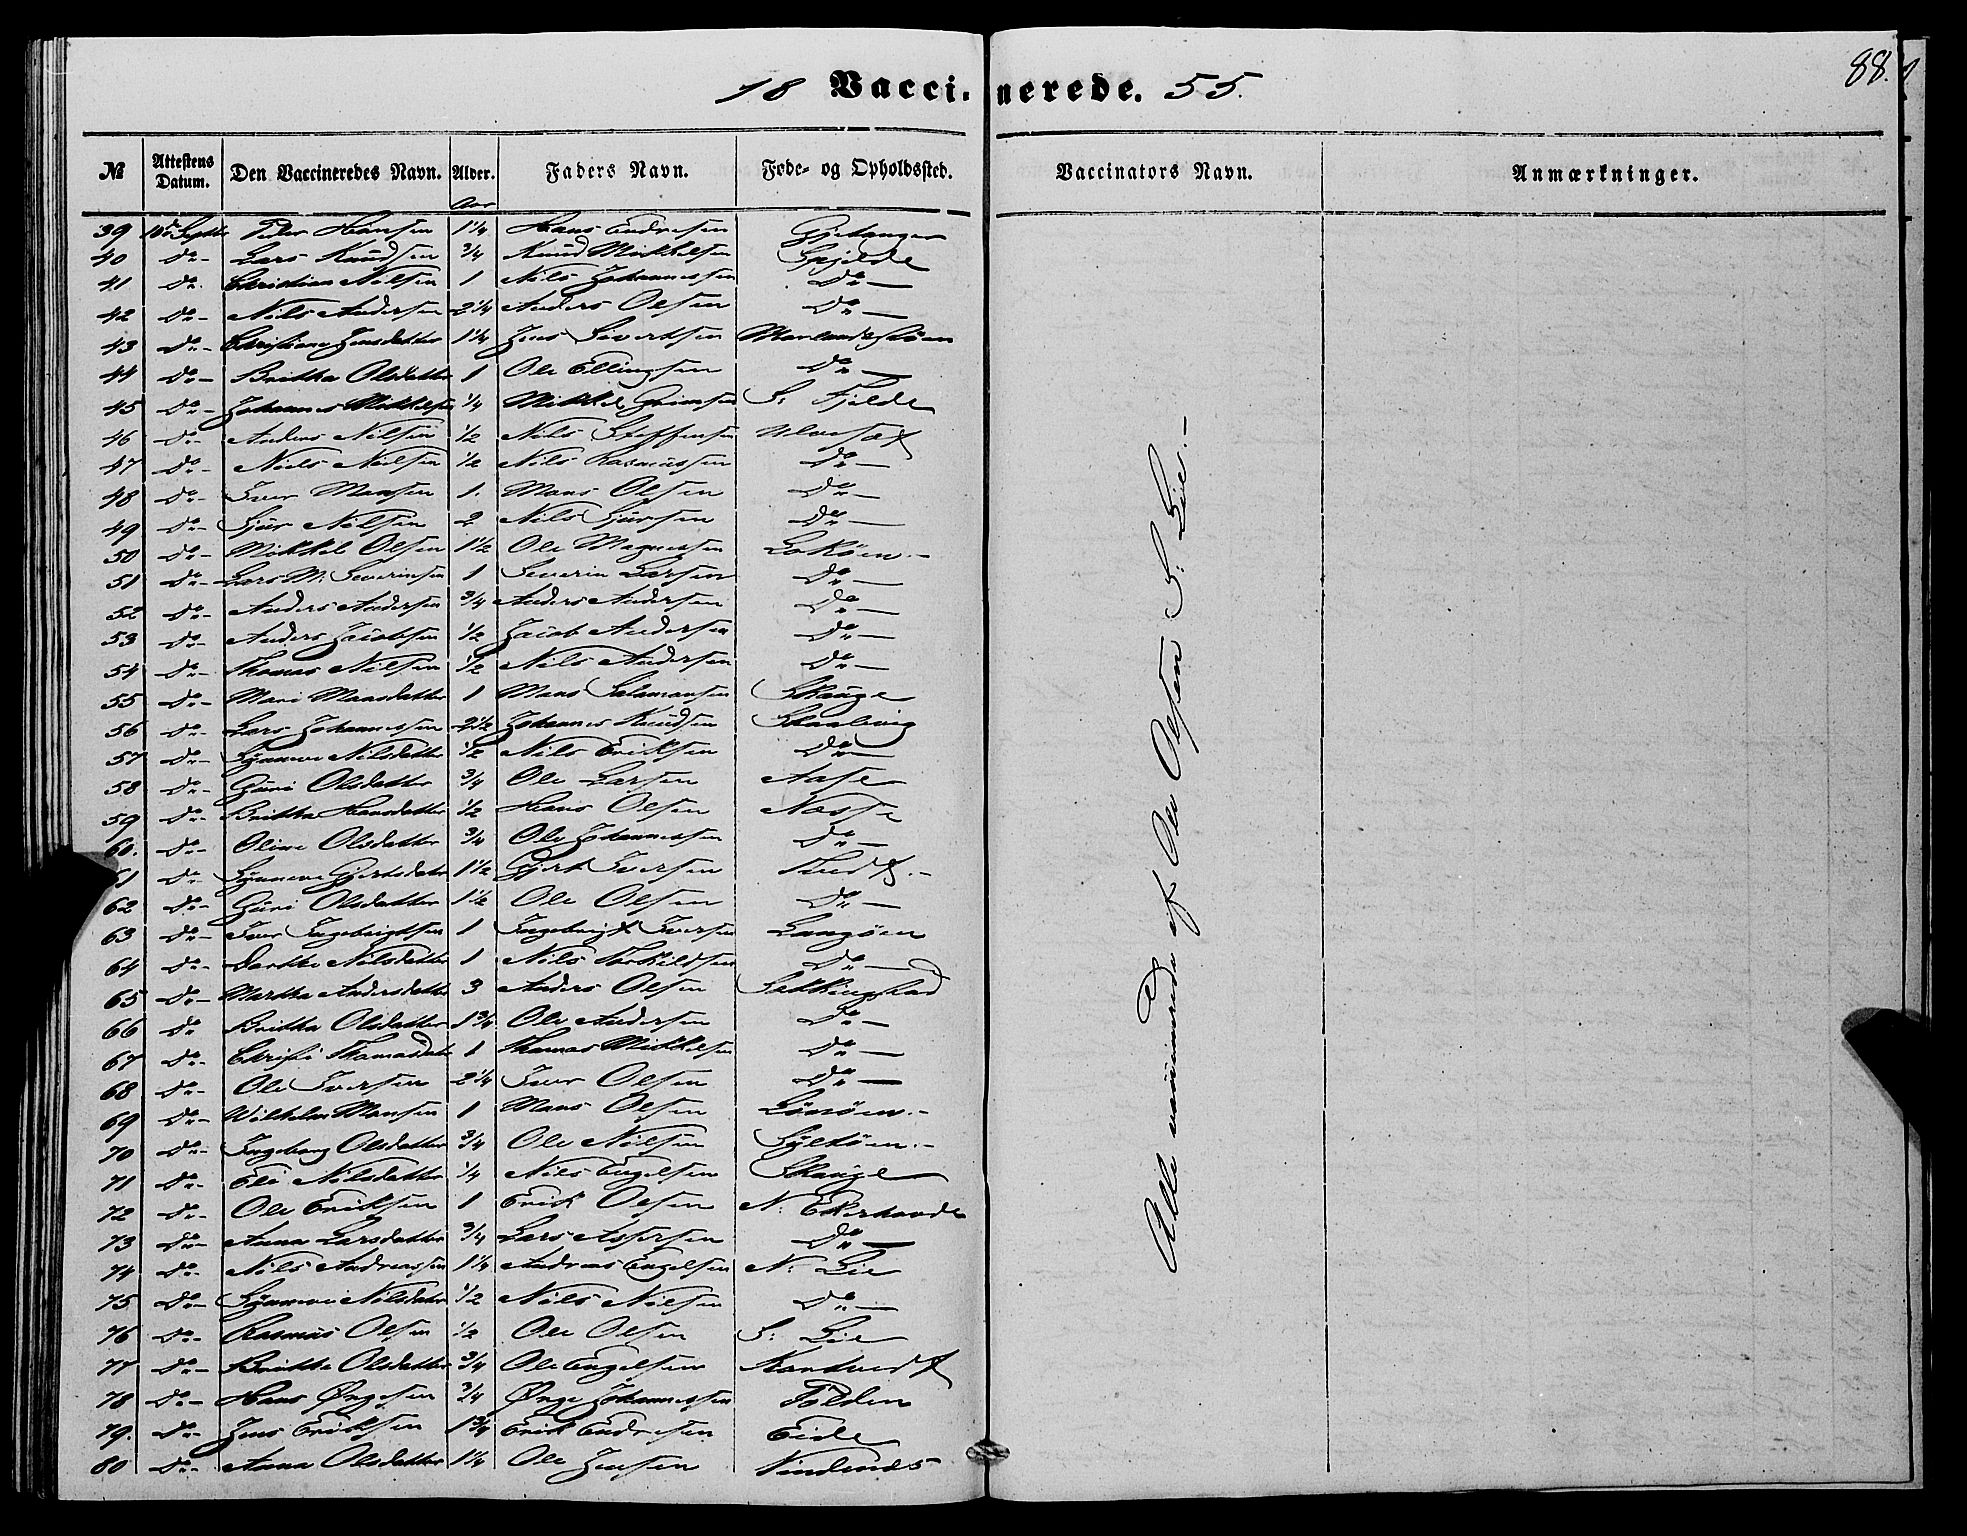 88.
18 Vaccinerede. 55.
№ Attestens Datum. Den Vaccineredes Navn. Alder. Faders Navn. Føde- og Opholdssted. Vaccinators Navn. Anmærkninger.
Aar
39 10de Septbr Peder Hansen 1¼ Hans Endresen Gjetanger
40 Do- Lars Knudsen ¾ Knud Mikkelsen
41 Do- Christian Nilsen 1 Nils Johannessen Do-
42 Do- Nils Andersen 2¼ Anders Olsen Do-
43 Do- Christiane Jensdatter 1¼ Jens Sivertsen
44 Do- Britha Olsdatter 1 Ole Ellingsen Do-
45 Do- Johannes Mikkelsen ¼ Mikkel Grimsen S: Fjelde
46 Do- Anders Nilsen ½ Nils Steffensen
47 Do- Niels Neilsen ½ Nils Rasmussen Do-
48 Do- Iver Mansen 1. Mans Olsen Do-
49 Do- Sjur Nilsen 2 Nils Sjursen Do-
50 Do- Mikkel Olsen 1½ Ole Magnessen Lokøen.-
51 Do- Lars M. Severinsen 1 Severin Larsen Do-
52 Do- Anders Andersen ¾ Anders Andersen Do-
53 Do- Anders Jacobsen ½ Jacob Andersen Do-
54 Do- Thomas Nilsen ½ Nils Andersen Do-
55 Do- Mari Mansdatter 1 Mans Salamonsen Skauge
56 Do- Lars Johannessen 2½ Johannes Knudsen Skaalevig
57 Do- Synneve Nilsdatter ½ Nils Eriksen Do-
58 Do- Guri Olsdatter ¾ Ole Larsen Aase
59 Do- Britha Hansdatter ½ Hans Olsen Nesse
60. Do- Oline Olsdatter ¾ Ole Johannessen Do-
61 Do- Synneve Gjertsdatr 1½ Gjert Iversen
62 Do- Guri Olsdatter 1½ Ole Olsen Do-
63 Do- Iver Ingebrigtsen 1 Ingebrigt Iversen Langøen
64 Do- Dorthe Nilsdatter 1 Nils Torkildsen Do-
65 Do- Martha Andersdatter 3 Anders Olsen Sekkingstad
66 Do Britha Olsdatter 1¾ Ole Andersen Do-
67 Do- Thomasdatr 1 Thomas Mikkelsen Do-
68 Do- Ole Iversen 2¼ Iver Olsen Do-
69 Do- Wilhelm Mansen 1 Mans Olsen Lønøen.-
70 Do- Ingeborg Olsdatter ¾ Ole Nilsen Syltøen.-
71 Do- Eli Nilsdatter ¼ Nils Engelsen Skauge
72 Do- Ole Eriksen 1 Erik Olsen N: Ekerhovde
73 Do- Anna Larsdatter ¾ Lars Do-
74 Do- Nils Andreassen 1¼ Andreas Engelsen N: Lie
75 Do- Synneve Nilsdatr ½ Nils Nilsen Do-
76 Do- Rasmus Olsen ½ Ole Olsen S: Lie
77 Do- Britha Olsdatter ¾ Ole Engelsen
78 Do- Hans Øngesen ¾ Ønge Johannessen Folden
79. Do- Jens Eriksen 1¾ Erik Endresen Eide
80 Do- Anna Olsdatter 1¼ Ole Jensen Vindenes
Alle vaccinerede af Ole Olsen S: Lie.-